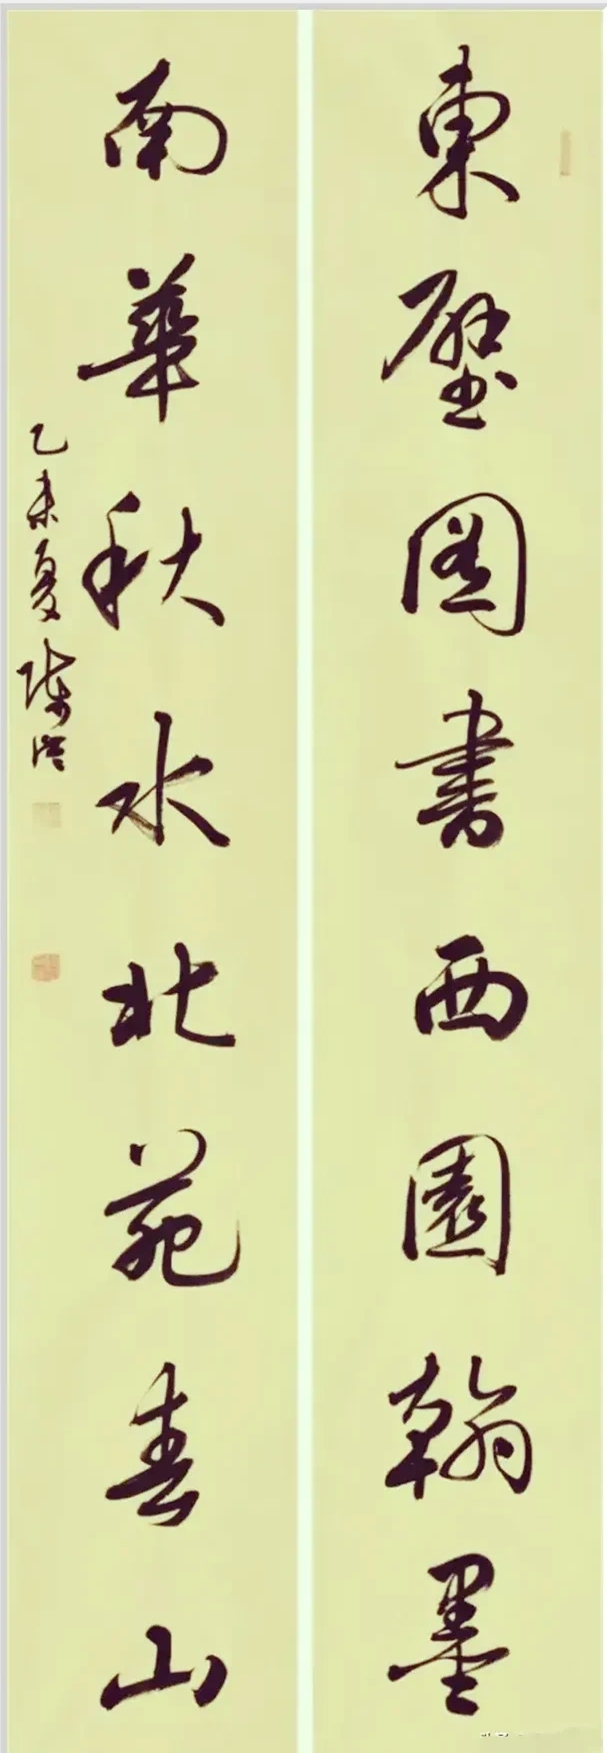 東壁圖書西園翰墨
南華秋水北苑春山
乙未夏陳